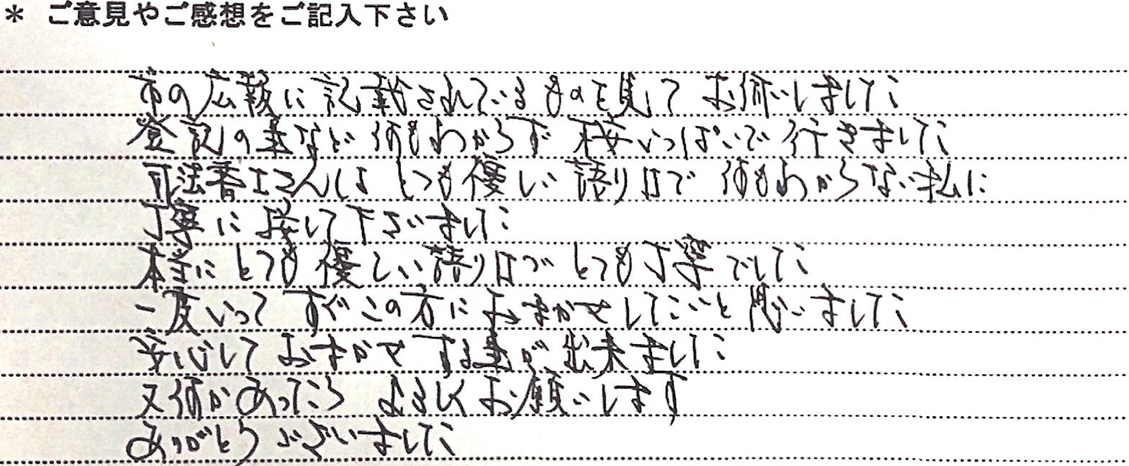 * ご意見やご感想をご記入下さい
市の広報に記載されているものを見てお伺いしました
登記の事など何もわからず不安いっぱいで行きました
司法書士さんはとても優しい語り口で何もわからない私に
丁寧に接して下さいました
本当にとても優しい語り口でとても丁寧でした
一度いってすぐこの方におまかせしたいと思いました
安心しておまかせする事が出来ました
又何かあったらよろしくお願いします
ありがとうございました